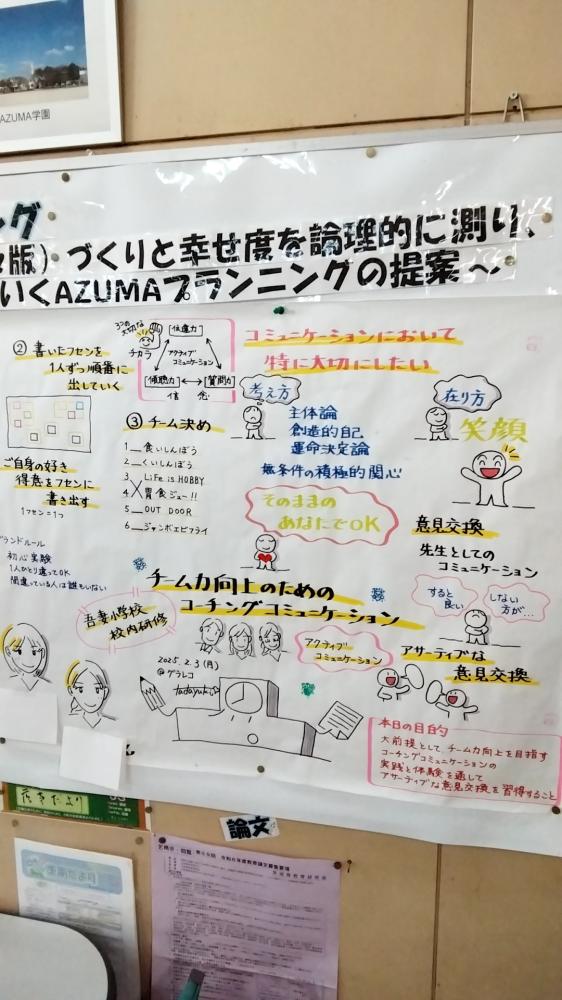 AZUMA学園
グ
版）づくりと幸せ度を論理的に測り、
いくAZUMAプランニングの提案～
② 書いたフセンを
1人ずつ順番に
出していく
ご自身の好き
得意をフセンに
書き出す
1フセン=1つ
グランドルール
初心実験
1人ひとり違ってOK
間違っている人は誰もいない
3つの大切な
チカラ
[伝達力]
アクティブ
コミュニケーション
[傾聴力] ⟷ [質問力]
信念
③ チーム決め
1__食いしんぼう
2__くいしんぼう
3 LiFe is HOBBY
4 胃食ジュー!!
5__OUT DOOR
6__ジャンボエビフライ
コミュニケーションにおいて
特に大切にしたい
考え方
主体論
創造的自己
運命決定論
無条件の積極的関心
そのままの
あなたでOK
在り方
笑顔
意見交換
先生としての
コミュニケーション
すると
良い
しない
方が…
アサーティブな
意見交換
チーム力向上のための
コーチングコミュニケーション
吾妻小学校
校内研修
アクティブ
コミュニケーション
2025.2.3(月)
@グラレコ
tadayuki
本日の目的
大前提として チーム力向上を目指す
コーチングコミュニケーションの
実践と体験を通して
アサーティブな意見交換を習得すること
論文